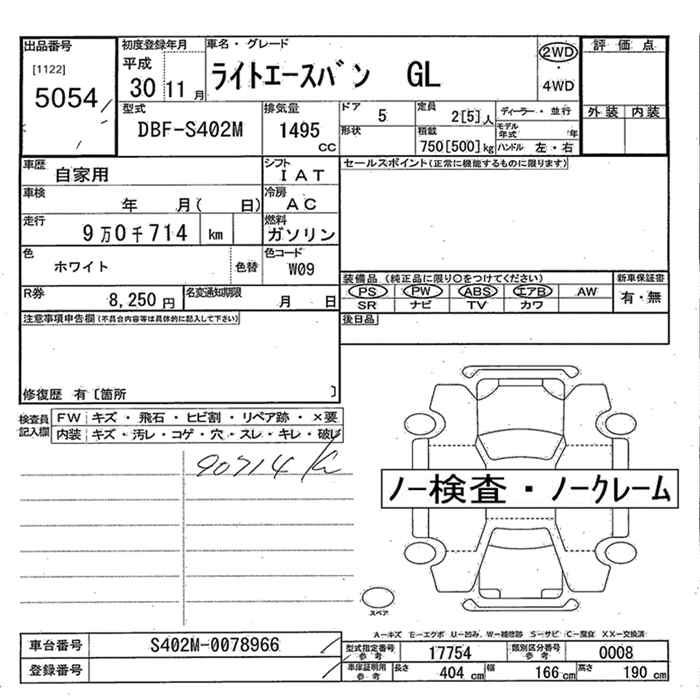 出品番号
[1122]
5054
初度登録年月
平成
30 11 月
車名・グレード
ライトエースバン GL
2WD
・
4WD
評価点
外装 内装
型式
DBF-S402M
排気量
1495
CC
ドア
5
形状
定員
2[5]人
積載
750[500]kg
ディーラー・並行
モデル年式 年
ハンドル 左・右
車歴
自家用
シフト
IAT
セールスポイント(正常に機能するものに限ります)
車検
年 月( 日)
冷房
AC
走行
9万0千714 km
燃料
ガソリン
色
ホワイト
色替
色コード
W09
R券
8,250円
名変通知期限
月 日
装備品 (純正品に限り○をつけてください)
PS PW ABS エアB AW
SR ナビ TV カワ
新車保証書
有・無
後日品
注意事項申告欄(不具合内容等は具体的に記入して下さい)
修復歴 有〔箇所 〕
検査員記入欄
FW キズ・飛石・ヒビ割・リペア跡・×要
内装 キズ・汚レ・コゲ・穴・スレ・キレ・破レ
90714 K
ノー検査・ノークレーム
スペア
A-キズ E-エクボ U-凹み W-補修跡 S-サビ C-腐食 XX-交換済
車台番号
S402M-0078966
登録番号
型式指定番号参考
17754
類別区分番号参考
0008
車庫証明用参考
長さ 404 cm 幅 166 cm 高さ 190 cm